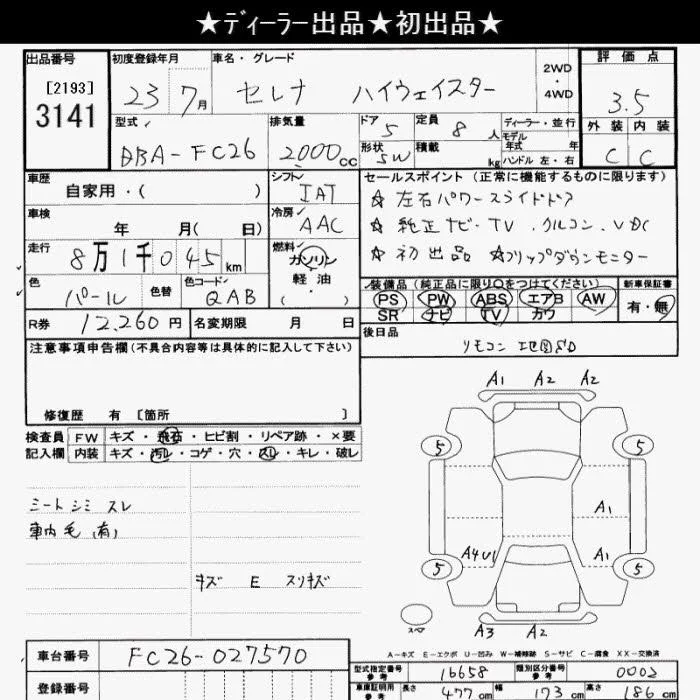 ★ディーラー出品★初出品★
出品番号 初度登録年月 車名・グレード 2WD・4WD 評価点
[2193] 3141 23 7月 セレナ ハイウェイスター 3.5
型式 排気量 ドア 定員 ディーラー・並行 外装 内装
DBA-FC26 2000cc 5 8人 モデル年式 年 C C
形状 SW 積載 kg ハンドル 左・右
車歴 シフト セールスポイント (正常に機能するものに限ります)
自家用・( ) IAT ☆左右パワースライドドア
車検 冷房 ☆純正ナビ・TV.クルコン.VDC
年 月( 日) AAC ☆初出品 ☆フリップダウンモニター
走行 8万1千045km 燃料 ガソリン
軽油
( ・ )
色 パール 色替 色コード QAB
装備品(純正品に限り○をつけてください) 新車保証書
PS PW ABS エアB AW 有・無
SR ナビ TV カワ
R券 12,260円 名変期限 月 日
後日品
リモコン 地図SD
注意事項申告欄(不具合内容等は具体的に記入して下さい)
修復歴 有 [箇所 ]
検査員 FW キズ・飛石・ヒビ割・リペア跡・×要
記入欄 内装 キズ・汚レ・コゲ・穴・スレ・キレ・破レ
A1 A2 A2
5 5
シート シミ スレ
車内毛(有)
A1
A4U1 A1
5 5
キズ E スリキズ
スペア
A3 A2
A-キズ E-エクボ U-凹み W-補修跡 S-サビ C-腐食 XX-交換済
車台番号 FC26-027570
型式指定番号 参考 16658 類別区分番号 参考 0002
登録番号
車庫証明用 参考 長さ 477cm 幅 173cm 高さ 186cm